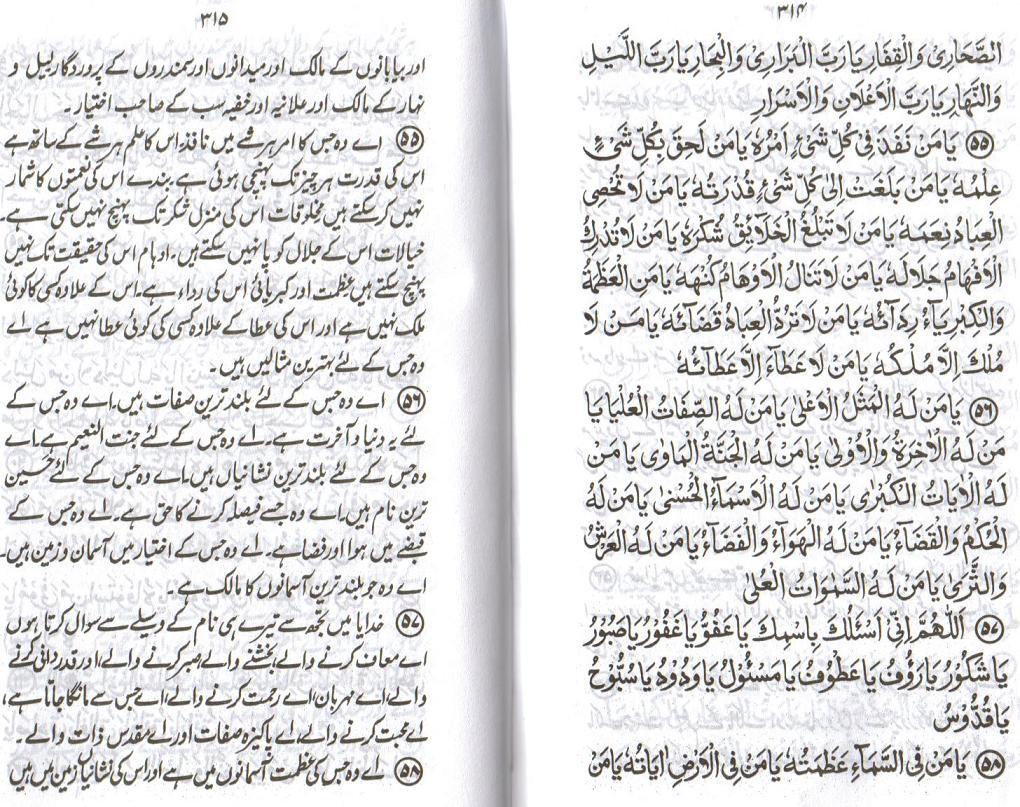 ۳۱۴
الصَّحَارِیْ وَالْقِفَارِ یَا رَبَّ الْبَرَارِیْ وَالْبِحَارِ یَا رَبَّ اللَّیْلِ
وَالنَّهَارِ یَا رَبَّ الْاَعْلَانِ وَالْاَسْرَارِ
۵۵ یَا مَنْ نَفَذَ فِیْ كُلِّ شَیْءٍ اَمْرُهٗ یَا مَنْ لَحِقَ بِكُلِّ شَیْءٍ
عِلْمُهٗ یَا مَنْ بَلَغَتْ اِلٰی كُلِّ شَیْءٍ قُدْرَتُهٗ یَا مَنْ لَا تُحْصِی
الْعِبَادُ نِعَمَهٗ یَا مَنْ لَا تَبْلُغُ الْخَلَآئِقُ شُكْرَهٗ یَا مَنْ لَا تُدْرِكُ
الْاَفْهَامُ جَلَالَهٗ یَا مَنْ لَا تَنَالُ الْاَوْهَامُ كُنْهَهٗ یَا مَنِ الْعَظَمَةُ
وَالْكِبْرِیَآءُ رِدَآئُهٗ یَا مَنْ لَا تَرُدُّ الْعِبَادُ قَضَآئَهٗ یَا مَنْ لَا
مُلْكَ اِلَّا مُلْكُهٗ یَا مَنْ لَا عَطَآءَ اِلَّا عَطَآئُهٗ
۵۶ یَا مَنْ لَهُ الْمَثَلُ الْاَعْلٰی یَا مَنْ لَهُ الصِّفَاتُ الْعُلْیَا یَا
مَنْ لَهُ الْاٰخِرَةُ وَالْاُوْلٰی یَا مَنْ لَهُ الْجَنَّةُ الْمَاوٰی یَا مَنْ
لَهُ الْاٰیَاتُ الْكُبْرٰی یَا مَنْ لَهُ الْاَسْمَآءُ الْحُسْنٰی یَا مَنْ لَهُ
الْحُكْمُ وَالْقَضَآءُ یَا مَنْ لَهُ الْهَوَآءُ وَالْفَضَآءُ یَا مَنْ لَهُ الْعَرْشُ
وَالثَّرٰی یَا مَنْ لَهُ السَّمٰوَاتُ الْعُلٰی
۵۷ اَللّٰهُمَّ اِنِّیْ اَسْئَلُكَ بِاسْمِكَ یَا عَفُوُّ یَا غَفُوْرُ یَا صَبُوْرُ
یَا شَكُوْرُ یَا رَؤُفُ یَا عَطُوْفُ یَا مَسْئُوْلُ یَا وَدُوْدُ یَا سُبُّوْحُ
یَا قُدُّوْسُ
۵۸ یَا مَنْ فِی السَّمَآءِ عَظَمَتُهٗ یَا مَنْ فِی الْاَرْضِ اٰیَاتُهٗ یَا مَنْ
۳۱۵
اور بیابانوں کے مالک اور میدانوں اور سمندروں کے پروردگار لیل و
نہار کے مالک اور علانیہ اور خفیہ سب کے صاحب اختیار۔
۵۵ اے وہ جس کا امر ہر شے میں نافذ اس کا علم ہر شے کے ساتھ ہے
اس کی قدرت ہر چیز تک پہنچی ہوئی ہے بندے اس کی نعمتوں کا شمار
نہیں کر سکتے ہیں مخلوقات اس کی منزل شکر تک پہنچ نہیں سکتی ہے۔
خیالات اس کے جلال کو پا نہیں سکتے ہیں۔ اوہام اس کی حقیقت تک نہیں
پہنچ سکتے ہیں عظمت اور کبریائی اس کی رداء ہے۔ اس کے علاوہ کسی کا کوئی
ملک نہیں ہے اور اس کی عطا کے علاوہ کسی کی کوئی عطا نہیں ہے اے
وہ جس کے لئے بہترین مثالیں ہیں۔
۵۶ اے وہ جس کے لئے بلند ترین صفات ہیں۔ اے وہ جس کے
لئے یہ دنیا و آخرت ہے۔ اے وہ جس کے لئے جنت النعیم ہے۔ اے
وہ جس کے لئے بلند ترین نشانیاں ہیں۔ اے وہ جس کے لئے حسین
ترین نام ہیں۔ اے وہ جسے فیصلہ کرنے کا حق ہے۔ اے وہ جس کے
قبضے میں ہوا اور فضا ہے۔ اے وہ جس کے اختیار میں آسمان و زمین ہیں۔
اے وہ جو بلند ترین آسمانوں کا مالک ہے۔
۵۷ خدایا میں تجھ سے تیرے ہی نام کے وسیلے سے سوال کرتا ہوں
اے معاف کرنے والے، بخشنے والے، صبر کرنے والے، اور قدر دانی کرنے
والے، اے مہربان، اے رحمت کرنے والے، اے جس سے مانگا جاتا ہے،
اے محبت کرنے والے، اے پاکیزہ صفات اور اے مقدس ذات والے۔
۵۸ اے وہ جس کی عظمت آسمانوں میں ہے اور اس کی نشانیاں زمین میں ہیں